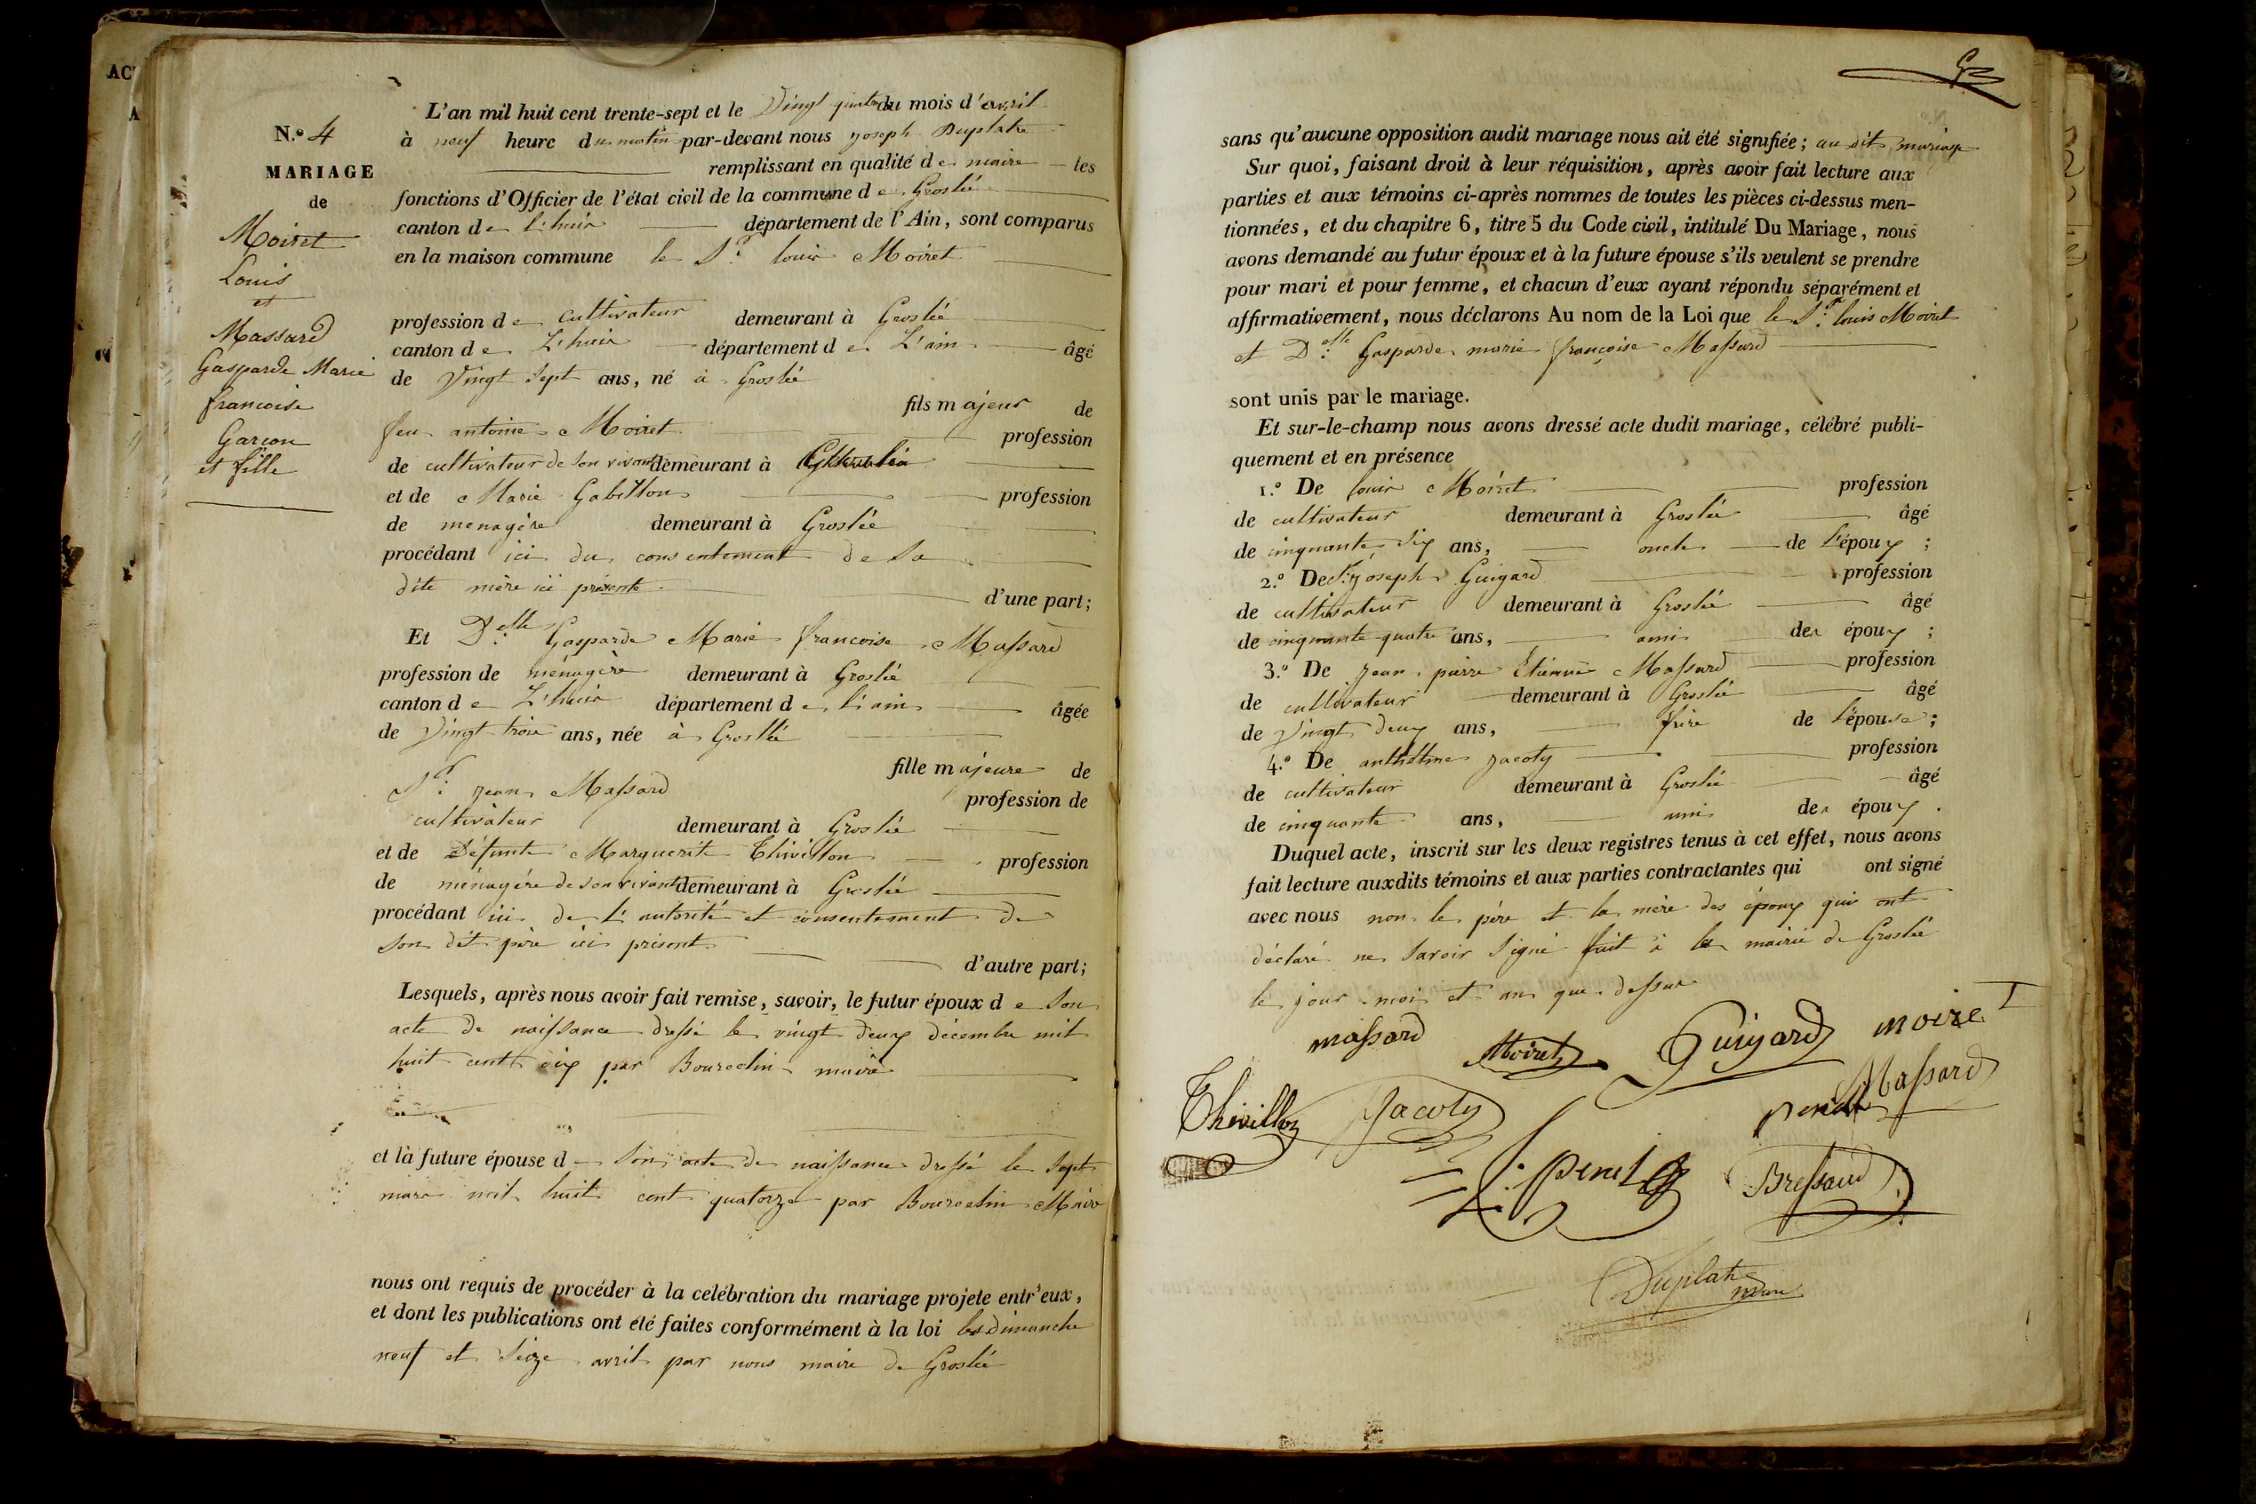 AC
A
N.º 4
MARIAGE
de
Moiret
Louis
et
Massard
Gasparde Marie
francoise
Garcon
et fille
L'an mil huit cent trente-sept et le Vingt quatre du mois d'avril
à neuf heure du matin par-devant nous joseph Duplatre
remplissant en qualité de maire les
fonctions d'Officier de l'état civil de la commune de Groslée
canton de l'huis département de l'Ain, sont comparus
en la maison commune le Sr. louis Moiret
profession de cultivateur demeurant à Groslée
canton de L'huis département de L'ain âgé
de Vingt Sept ans, né à Groslée
fils majeur de
feu antoine Moiret profession
de cultivateur de son vivant demeurant à
et de Marie Gabillon profession
de menagère demeurant à Groslée
procédant ici du consentement de Sa
dite mère ici présente d'une part;
Et Delle Gasparde Marie francoise Massard
profession de ménagère demeurant à Groslée
canton de L'huis département de l'ain âgée
de Vingt trois ans, née à Groslée
fille majeure de
Sr. jean Massard profession de
cultivateur demeurant à Groslée
et de Défunte Marguerite Thivillon profession
de ménagére de son vivant demeurant à Groslée
procédant ici de L'autorité et consentement de
Son dit père ici présent
d'autre part;
Lesquels, après nous avoir fait remise, savoir, le futur époux de Son
acte de naissance dressé le vingt deux décembre mil
huit cent dix par Bourcelin maire
et la future épouse de Son acte de naissance dressé le Sept
mars mil huit cent quatorze par Bourcelin Maire
nous ont requis de procéder à la celébration du mariage projete entr'eux,
et dont les publications ont été faites conformément à la loi les dimanche
neuf et Seize avril par nous maire de Groslée
sans qu'aucune opposition audit mariage nous ait été signifiée; au dit mariage
Sur quoi, faisant droit à leur réquisition, après avoir fait lecture aux
parties et aux témoins ci-après nommes de toutes les pièces ci-dessus men-
tionnées, et du chapitre 6, titre 5 du Code civil, intitulé Du Mariage, nous
avons demandé au futur époux et à la future épouse s'ils veulent se prendre
pour mari et pour femme, et chacun d'eux ayant répondu séparément et
affirmativement, nous déclarons Au nom de la Loi que le Sr. louis Moiret
et Delle Gasparde marie françoise Massard
sont unis par le mariage.
Et sur-le-champ nous avons dressé acte dudit mariage, célébré publi-
quement et en présence
1.º De louis Moiret profession
de cultivateur demeurant à Groslée âgé
de cinquante Six ans, oncle de l'époux;
2.º De Sr. joseph Guigard profession
de cultivateur demeurant à Groslée âgé
de cinquante quatre ans, ami des époux;
3.º De jean pierre Étienne Massard profession
de cultivateur demeurant à Groslée âgé
de Vingt deux ans, frère de l'épouse;
4.º De anthelme jacoty profession
de cultivateur demeurant à Groslée âgé
de cinquante ans, ami des époux.
Duquel acte, inscrit sur les deux registres tenus à cet effet, nous avons
fait lecture auxdits témoins et aux parties contractantes qui ont signé
avec nous non le père et la mère des époux qui ont
déclaré ne Savoir Signé fait à la mairie de Groslée
le jour mois et an que dessus
massard Moiret Guigard moiret
Thivillon Jacoty Massard
penet Bressand
Duplatre
maire